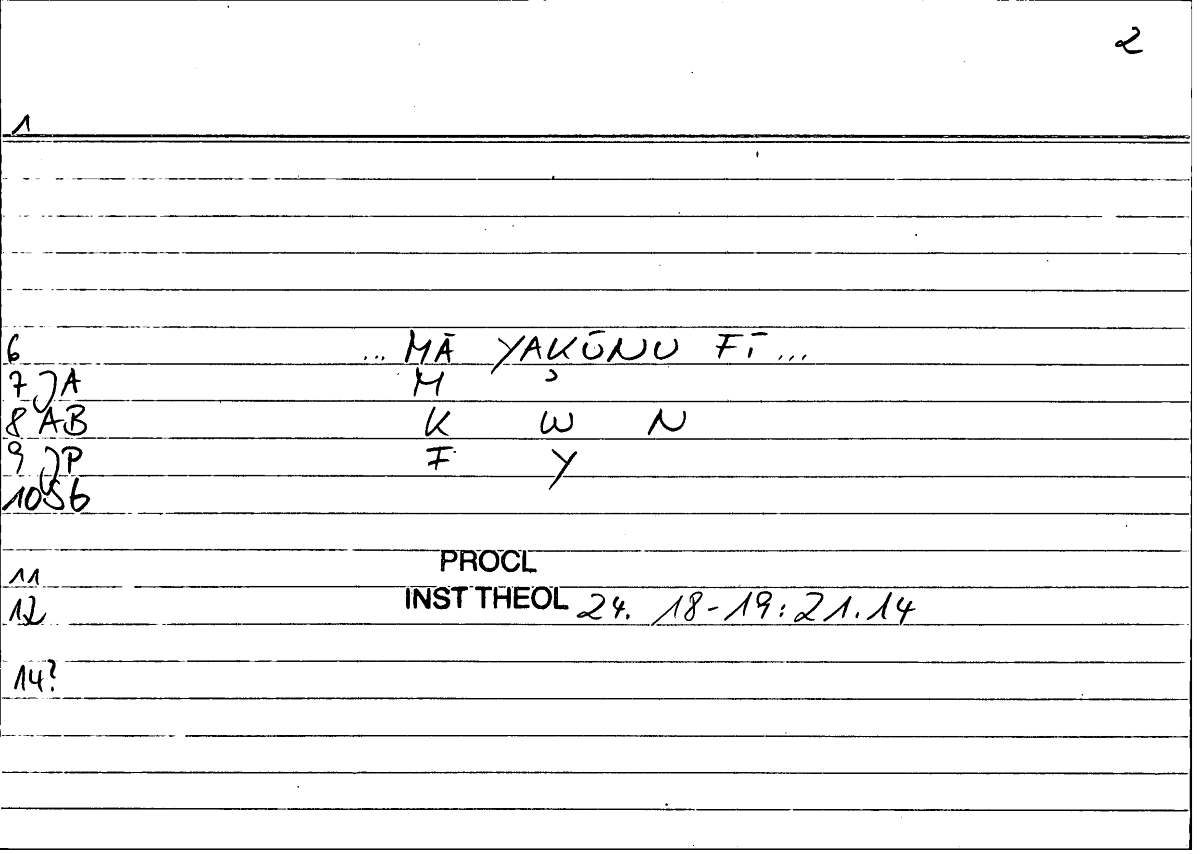 2
1
6 ... MĀ YAKŪNU FĪ ...
7 JA M ʾ
8 AB K W N
9 JP F Y
10 Sb
PROCL
11
12 INST THEOL 24. 18-19:21.14
14?